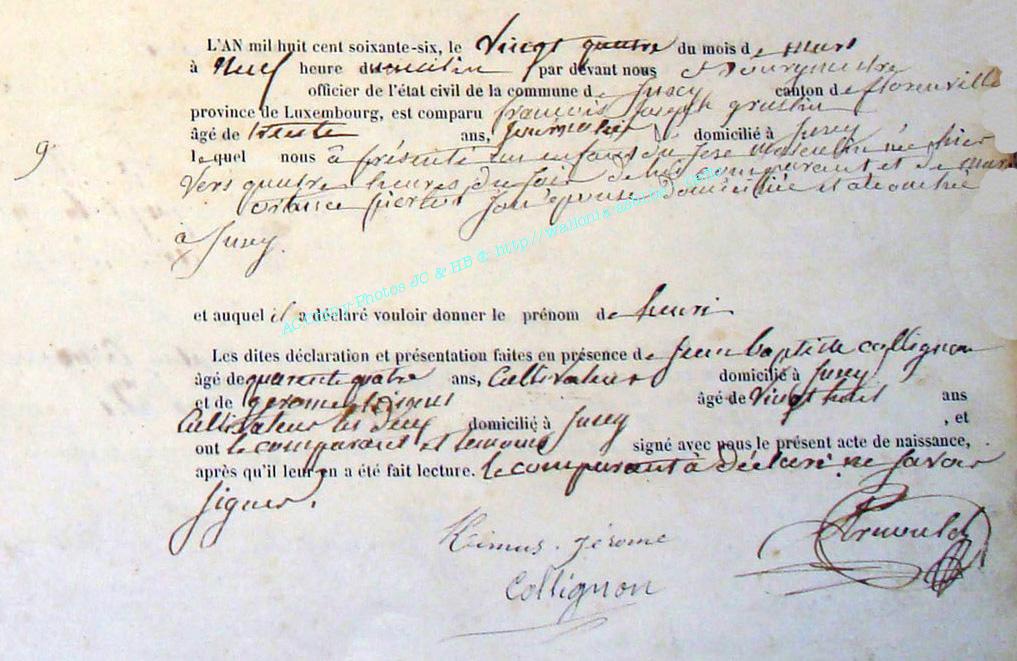 L'AN mil huit cent soixante-six, le vingt quatre du mois de mars
à neuf heure du matin par devant nous Bourgmestre
officier de l'état civil de la commune de Jusey canton de florenville
province de Luxembourg, est comparu françois Joseph
âgé de trente ans, Journalier domicilié à Jusey
lequel nous à présenté un enfant du sexe masculin née hier
vers quatre heures du soir de lui comparant et de marie
son épouse domiciliée et
à Jusey.
9
et auquel il a déclaré vouloir donner le prénom de henri
Les dites déclaration et présentation faites en présence de Jean baptiste collignon
âgé de quarante quatre ans, Cultivateur domicilié à Jusey
et de gerome âgé de vingt huit ans
Cultivateur les deux domicilié à Jusey , et
ont le comparant et temoins signé avec nous le présent acte de naissance,
après qu'il leur en a été fait lecture. le comparant à déclaré ne savoir
signer.
Jérome
Collignon
Academy-Photos JC & HB @ http://wallonia-asbl